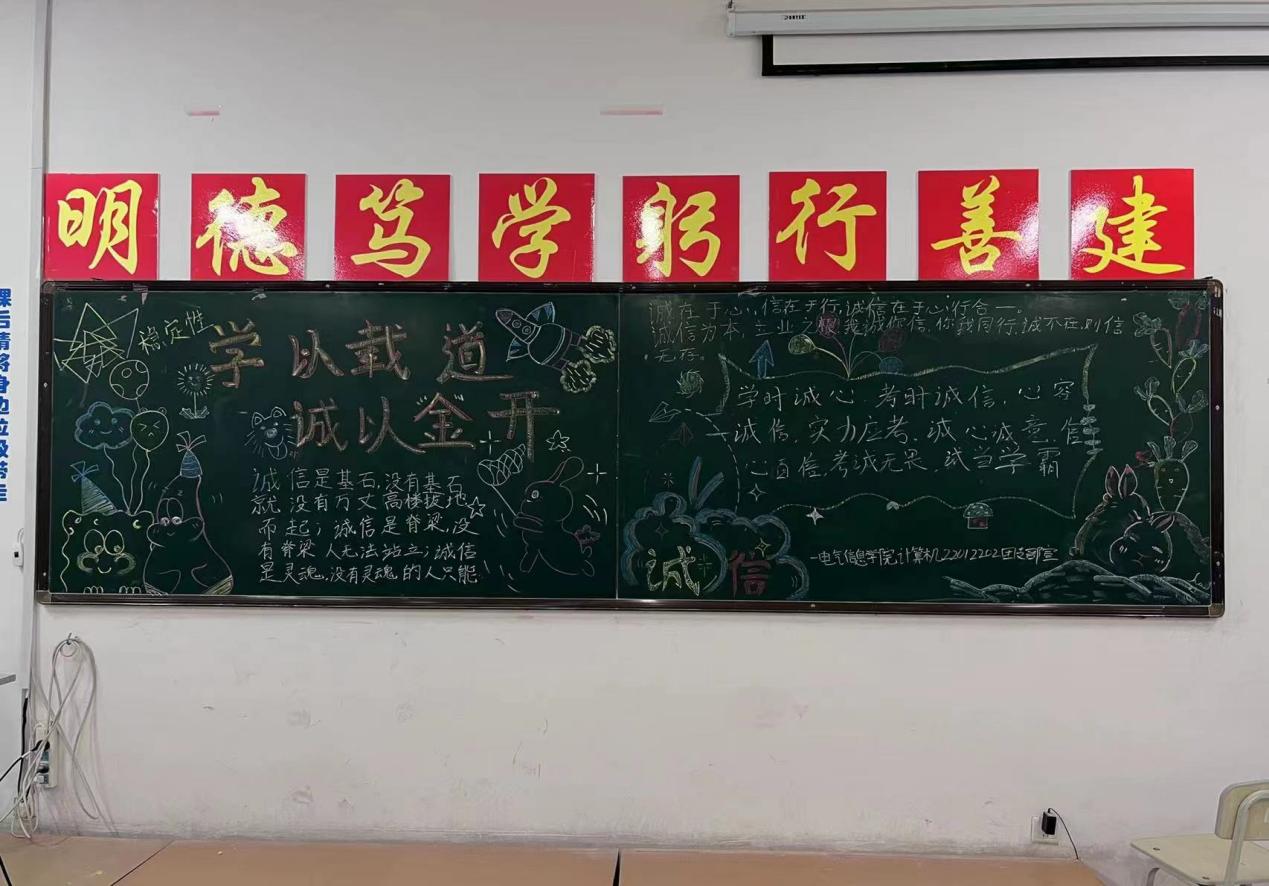 明德笃学躬行善建
稳定性
学以载道
诚以金开
诚信是基石,没有基石
就没有万丈高楼拔地
而起;诚信是脊梁,没
有脊梁人无法站立;诚信
是灵魂,没有灵魂的人只能
诚在于心,信在于行,诚信在于心行合一。
诚信为本,立业之根我诚你信,你我同行,诚不在,则信
无存
学时诚心 考时诚信,心容
诚信,实力应考,诚心诚意,信
心自信,考诚无畏,试当学霸
诚信
一电气信息学院计算机22012202团支部宣
课后请将身边垃圾带走